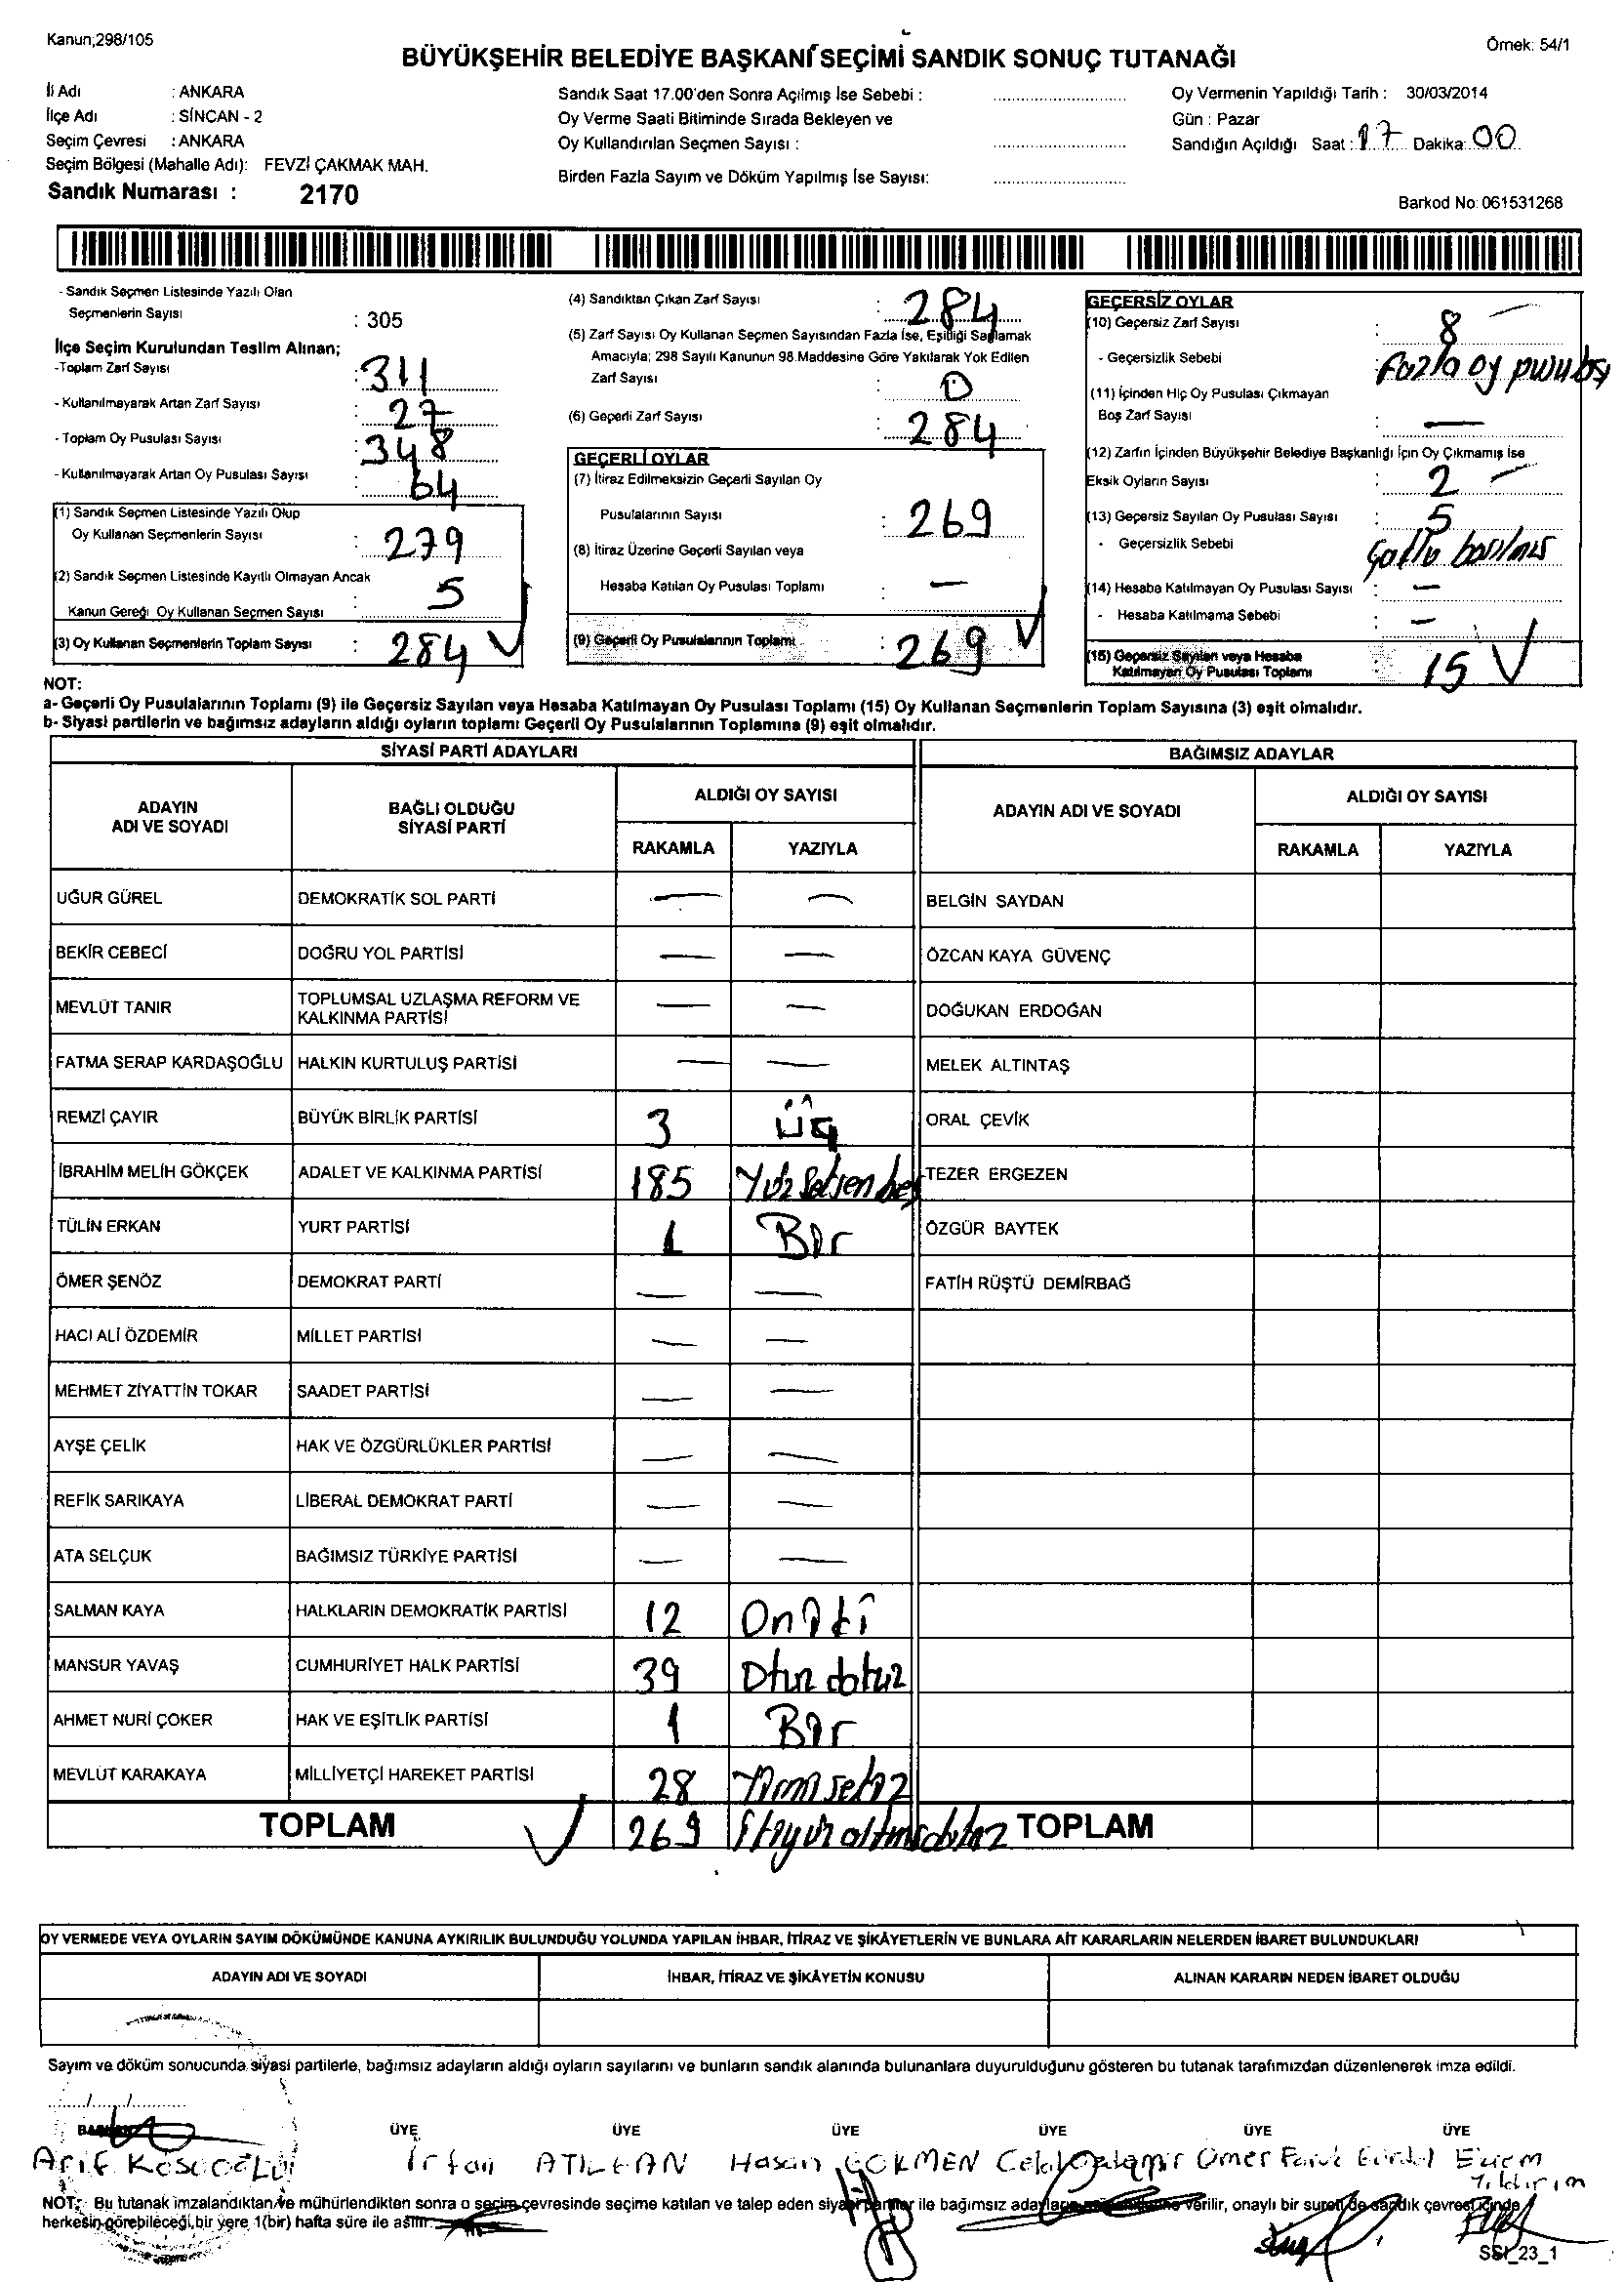 Kanun;298/105
Örnek: 54/1
BÜYÜKŞEHİR BELEDİYE BAŞKANI SEÇİMİ SANDIK SONUÇ TUTANAĞI
İli Adı : ANKARA
İlçe Adı : SİNCAN - 2
Seçim Çevresi : ANKARA
Seçim Bölgesi (Mahalle Adı): FEVZİ ÇAKMAK MAH.
Sandık Numarası : 2170
Sandık Saat 17.00'den Sonra Açılmış İse Sebebi :
Oy Verme Saati Bitiminde Sırada Bekleyen ve
Oy Kullandırılan Seçmen Sayısı :
Birden Fazla Sayım ve Döküm Yapılmış İse Sayısı:
Oy Vermenin Yapıldığı Tarih : 30/03/2014
Gün : Pazar
Sandığın Açıldığı Saat : 17 Dakika: 00
Barkod No: 061531268
- Sandık Seçmen Listesinde Yazılı Olan
Seçmenlerin Sayısı : 305
İlçe Seçim Kurulundan Teslim Alınan;
-Toplam Zarf Sayısı : 311
- Kullanılmayarak Artan Zarf Sayısı : 27
- Toplam Oy Pusulası Sayısı : 348
- Kullanılmayarak Artan Oy Pusulası Sayısı : 64
(1) Sandık Seçmen Listesinde Yazılı Olup
Oy Kullanan Seçmenlerin Sayısı : 279
(2) Sandık Seçmen Listesinde Kayıtlı Olmayan Ancak
Kanun Gereği Oy Kullanan Seçmen Sayısı : 5
(3) Oy Kullanan Seçmenlerin Toplam Sayısı : 284
(4) Sandıktan Çıkan Zarf Sayısı : 284
(5) Zarf Sayısı Oy Kullanan Seçmen Sayısından Fazla İse, Eşitliği Sağlamak
Amacıyla; 298 Sayılı Kanunun 98.Maddesine Göre Yakılarak Yok Edilen
Zarf Sayısı : 0
(6) Geçerli Zarf Sayısı : 284
GEÇERLİ OYLAR
(7) İtiraz Edilmeksizin Geçerli Sayılan Oy
Pusulalarının Sayısı : 269
(8) İtiraz Üzerine Geçerli Sayılan veya
Hesaba Katılan Oy Pusulası Toplamı : —
(9) Geçerli Oy Pusulalarının Toplamı : 269
GEÇERSİZ OYLAR
(10) Geçersiz Zarf Sayısı : 8
- Geçersizlik Sebebi Fazla oy pusulası
(11) İçinden Hiç Oy Pusulası Çıkmayan
Boş Zarf Sayısı : —
(12) Zarfın İçinden Büyükşehir Belediye Başkanlığı İçin Oy Çıkmamış İse
Eksik Oyların Sayısı : 2
(13) Geçersiz Sayılan Oy Pusulası Sayısı : 5
- Geçersizlik Sebebi
(14) Hesaba Katılmayan Oy Pusulası Sayısı : —
- Hesaba Katılmama Sebebi : —
(15) Geçersiz Sayılan veya Hesaba
Katılmayan Oy Pusulası Toplamı : 15
NOT:
a- Geçerli Oy Pusulalarının Toplamı (9) ile Geçersiz Sayılan veya Hesaba Katılmayan Oy Pusulası Toplamı (15) Oy Kullanan Seçmenlerin Toplam Sayısına (3) eşit olmalıdır.
b- Siyasi partilerin ve bağımsız adayların aldığı oyların toplamı Geçerli Oy Pusulalarının Toplamına (9) eşit olmalıdır.
SİYASİ PARTİ ADAYLARI
BAĞIMSIZ ADAYLAR
ADAYIN ADI VE SOYADI
BAĞLI OLDUĞU SİYASİ PARTİ
ALDIĞI OY SAYISI
RAKAMLA YAZIYLA
ADAYIN ADI VE SOYADI
ALDIĞI OY SAYISI
RAKAMLA YAZIYLA
UĞUR GÜREL DEMOKRATİK SOL PARTİ — — BELGİN SAYDAN
BEKİR CEBECİ DOĞRU YOL PARTİSİ — — ÖZCAN KAYA GÜVENÇ
MEVLÜT TANIR TOPLUMSAL UZLAŞMA REFORM VE KALKINMA PARTİSİ — — DOĞUKAN ERDOĞAN
FATMA SERAP KARDAŞOĞLU HALKIN KURTULUŞ PARTİSİ — — MELEK ALTINTAŞ
REMZİ ÇAYIR BÜYÜK BİRLİK PARTİSİ 3 Üç ORAL ÇEVİK
İBRAHİM MELİH GÖKÇEK ADALET VE KALKINMA PARTİSİ 185 Yüz seksen beş TEZER ERGEZEN
TÜLİN ERKAN YURT PARTİSİ 1 Bir ÖZGÜR BAYTEK
ÖMER ŞENÖZ DEMOKRAT PARTİ — — FATİH RÜŞTÜ DEMİRBAĞ
HACI ALİ ÖZDEMİR MİLLET PARTİSİ — —
MEHMET ZİYATTİN TOKAR SAADET PARTİSİ — —
AYŞE ÇELİK HAK VE ÖZGÜRLÜKLER PARTİSİ — —
REFİK SARIKAYA LİBERAL DEMOKRAT PARTİ — —
ATA SELÇUK BAĞIMSIZ TÜRKİYE PARTİSİ — —
SALMAN KAYA HALKLARIN DEMOKRATİK PARTİSİ 12 On iki
MANSUR YAVAŞ CUMHURİYET HALK PARTİSİ 39 Otuz dokuz
AHMET NURİ ÇOKER HAK VE EŞİTLİK PARTİSİ 1 Bir
MEVLÜT KARAKAYA MİLLİYETÇİ HAREKET PARTİSİ 28 Yirmi sekiz
TOPLAM 269 İkiyüz altmış dokuz TOPLAM
OY VERMEDE VEYA OYLARIN SAYIM DÖKÜMÜNDE KANUNA AYKIRILIK BULUNDUĞU YOLUNDA YAPILAN İHBAR, İTİRAZ VE ŞİKÂYETLERİN VE BUNLARA AİT KARARLARIN NELERDEN İBARET BULUNDUKLARI
ADAYIN ADI VE SOYADI İHBAR, İTİRAZ VE ŞİKÂYETİN KONUSU ALINAN KARARIN NEDEN İBARET OLDUĞU
Sayım ve döküm sonucunda siyasi partilerle, bağımsız adayların aldığı oyların sayılarını ve bunların sandık alanında bulunanlara duyurulduğunu gösteren bu tutanak tarafımızdan düzenlenerek imza edildi.
ÜYE ÜYE ÜYE ÜYE ÜYE ÜYE
Arif İrfan ATILGAN Hasan GÖKMEN Ömer Faruk
Yıldırım
NOT: Bu tutanak imzalandıktan ve mühürlendikten sonra o seçim çevresinde seçime katılan ve talep eden siyasi partiler ile bağımsız adaylara verilir, onaylı bir sureti de sandık çevresi içinde
herkesin görebileceği bir yere 1(bir) hafta süre ile asılır.
SSI_23_1